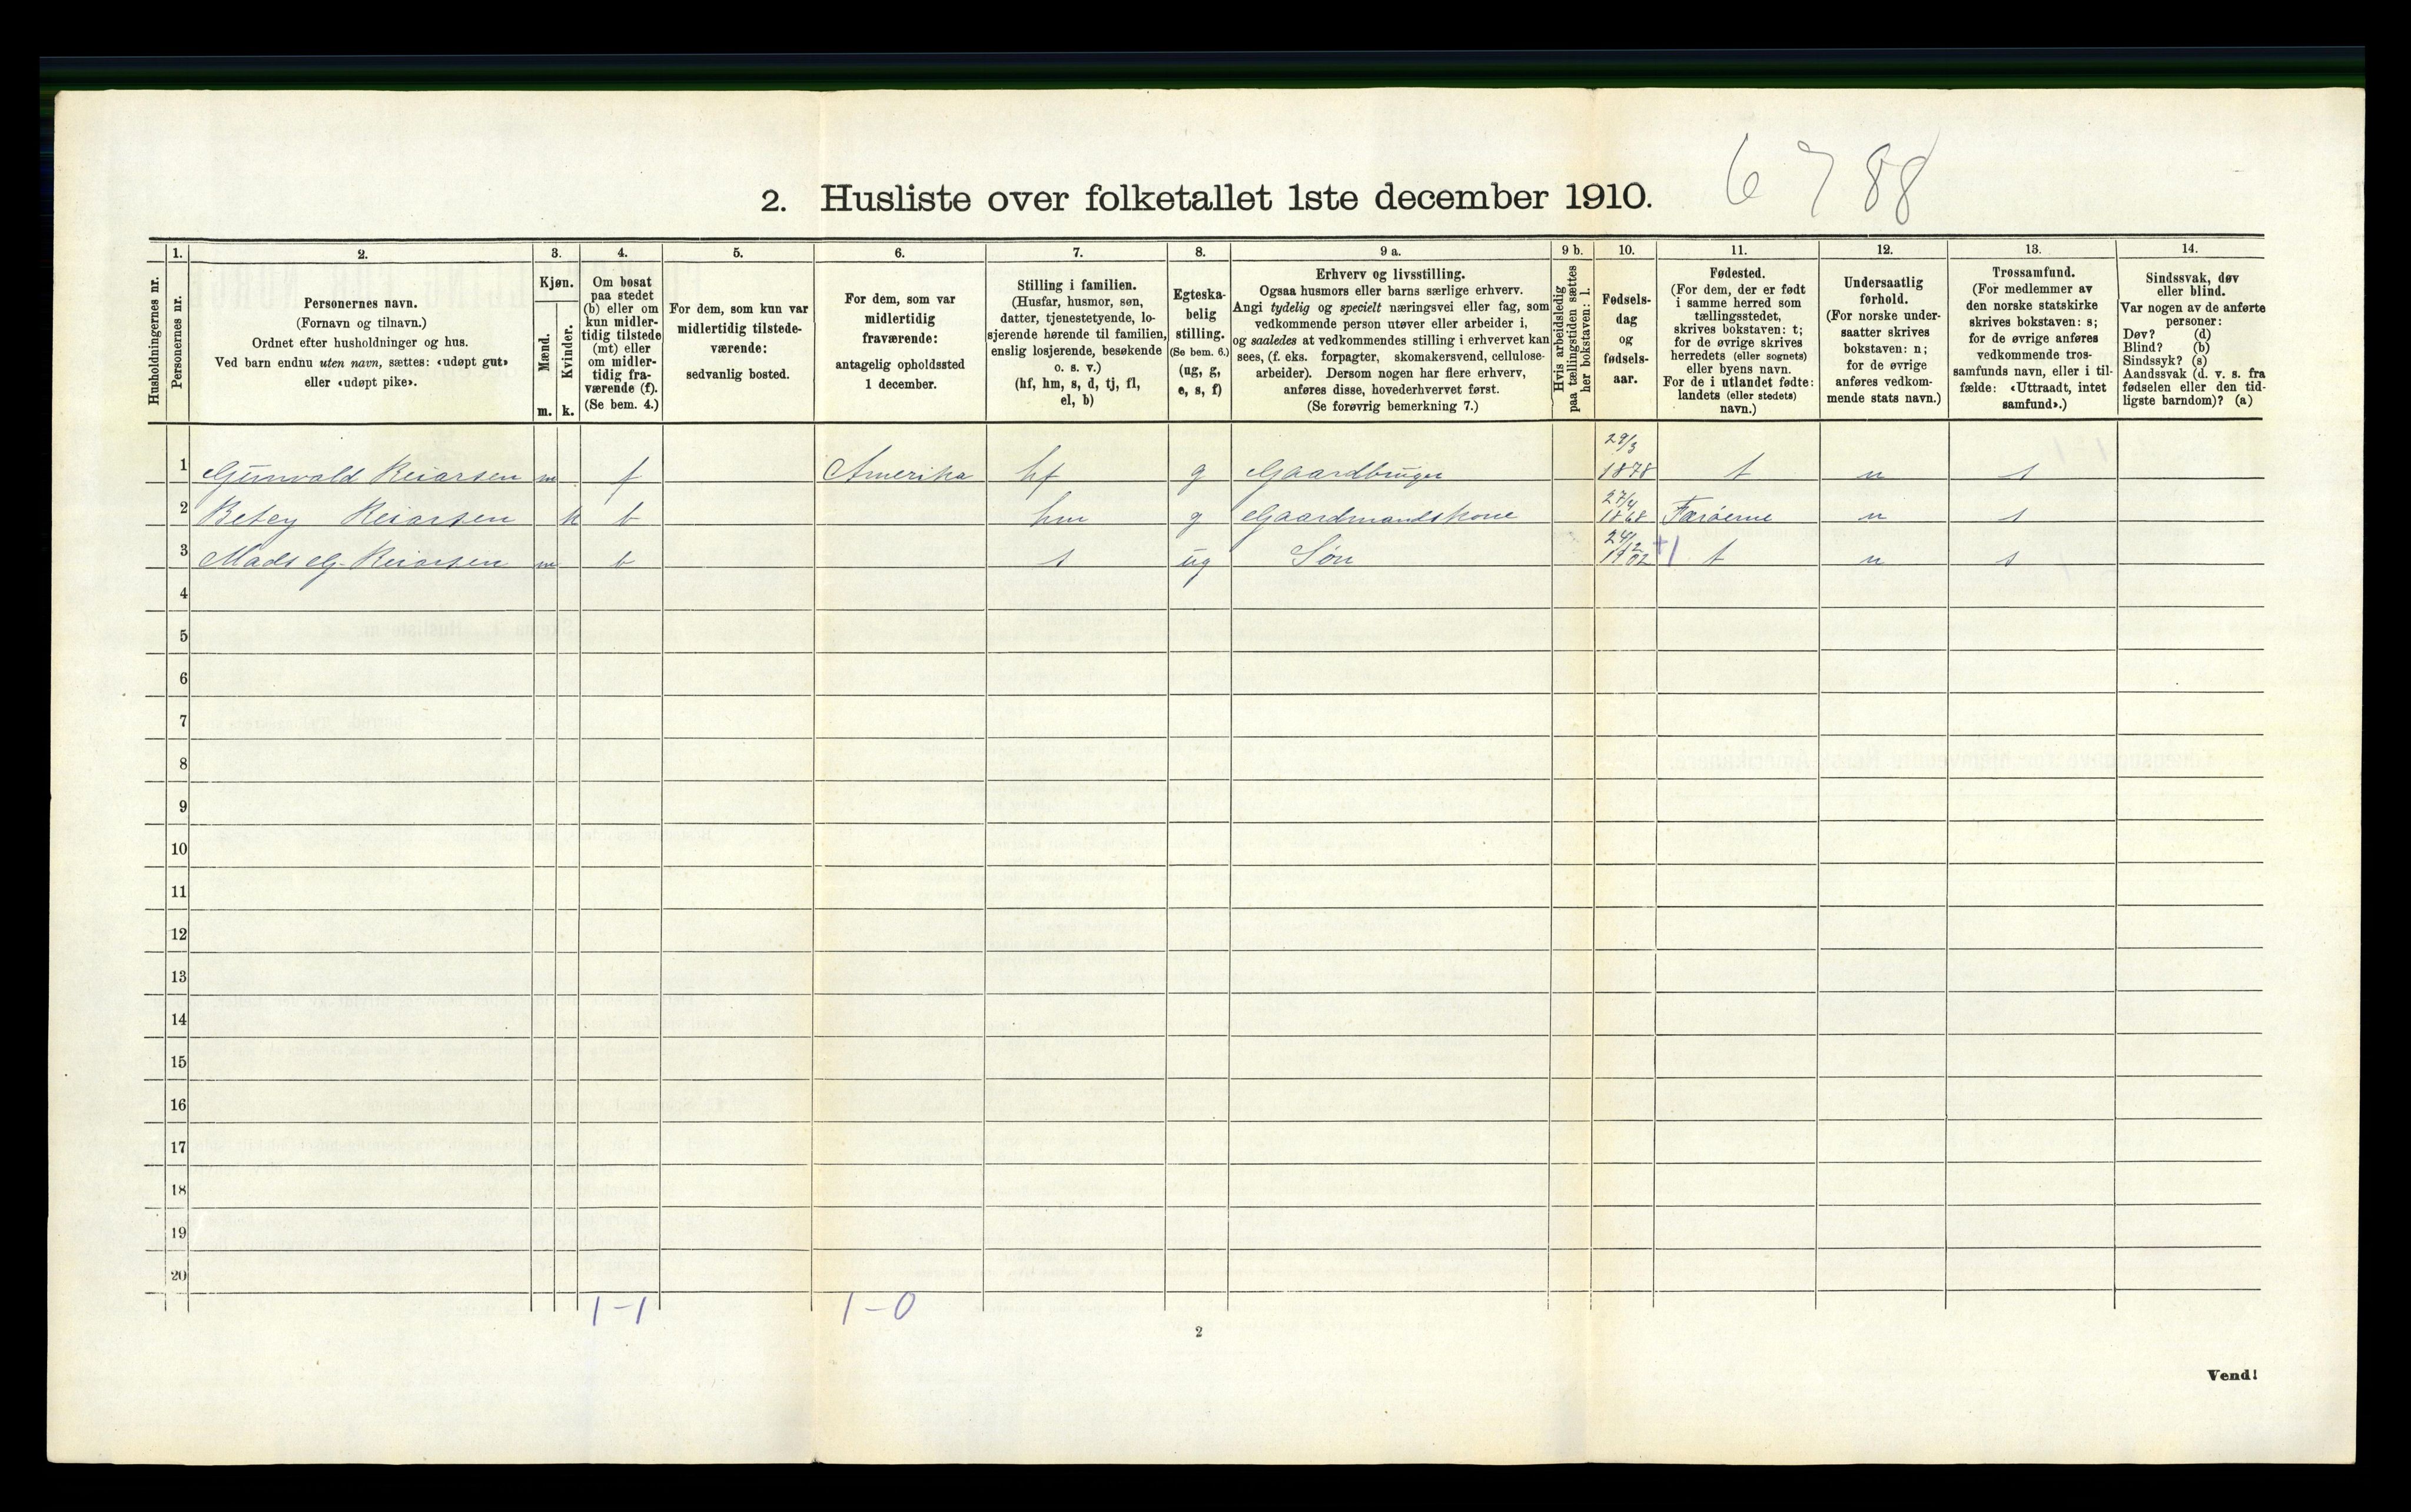 6788
2. Husliste over folketallet 1ste december 1910.
Husholdningernes nr.
1.
Personernes nr.
2.
Personernes navn.
(Fornavn og tilnavn.)
Ordnet efter husholdninger og hus.
Ved barn endnu uten navn, sættes: «udøpt gut»
eller «udøpt pike».
3.
Kjøn.
Mænd.
m.
Kvinder.
k.
4.
Om bosat
paa stedet
(b) eller om
kun midler-
tidig tilstede
(mt) eller
om midler-
tidig fra-
værende (f).
(Se bem. 4.)
5.
For dem, som kun var
midlertidig tilstede-
værende:
sedvanlig bosted.
6.
For dem, som var
midlertidig
fraværende:
antagelig opholdssted
1 december.
7.
Stilling i familien.
(Husfar, husmor, søn,
datter, tjenestetyende, lo-
sjerende hørende til familien,
enslig losjerende, besøkende
o. s. v.)
(hf, hm, s, d, tj, fl,
el, b)
8.
Egteska-
belig
stilling.
(Se bem. 6.)
(ug, g,
e, s, f)
9 a.
Erhverv og livsstilling.
Ogsaa husmors eller barns særlige erhverv.
Angi tydelig og specielt næringsvei eller fag, som
vedkommende person utøver eller arbeider i,
og saaledes at vedkommendes stilling i erhvervet kan
sees, (f. eks. forpagter, skomakersvend, cellulose-
arbeider). Dersom nogen har flere erhverv,
anføres disse, hovederhvervet først.
(Se forøvrig bemerkning 7.)
9 b.
Hvis arbeidsledig
paa tællingstiden sættes
her bokstaven: l.
10.
Fødsels-
dag
og
fødsels-
aar.
11.
Fødested.
(For dem, der er født
i samme herred som
tællingsstedet,
skrives bokstaven: t;
for de øvrige skrives
herredets (eller sognets)
eller byens navn.
For de i utlandet fødte:
landets (eller stedets)
navn.)
12.
Undersaatlig
forhold.
(For norske under-
saatter skrives
bokstaven: n;
for de øvrige
anføres vedkom-
mende stats navn.)
13.
Trossamfund.
(For medlemmer av
den norske statskirke
skrives bokstaven: s;
for de øvrige anføres
vedkommende tros-
samfunds navn, eller i til-
fælde: «Uttraadt, intet
samfund».)
14.
Sindssvak, døv
eller blind.
Var nogen av de anførte
personer:
Døv? (d)
Blind? (b)
Sindssyk? (s)
Aandssvak (d. v. s. fra
fødselen eller den tid-
ligste barndom)? (a)
29/3
1 Gunvald Reiarsen m f Amerika hf g Gaardbruger 1878 t n s
27/4
2 Betsy Reiarsen k b hm g Gaardmandskone 1868 Færøerne n s
24/12 +1
3 Mads G. Reiarsen m b s ug Søn 1902 t n s
4
5
6
7
8
9
10
11
12
13
14
15
16
17
18
19
20
1-1 1-0
2
Vend!